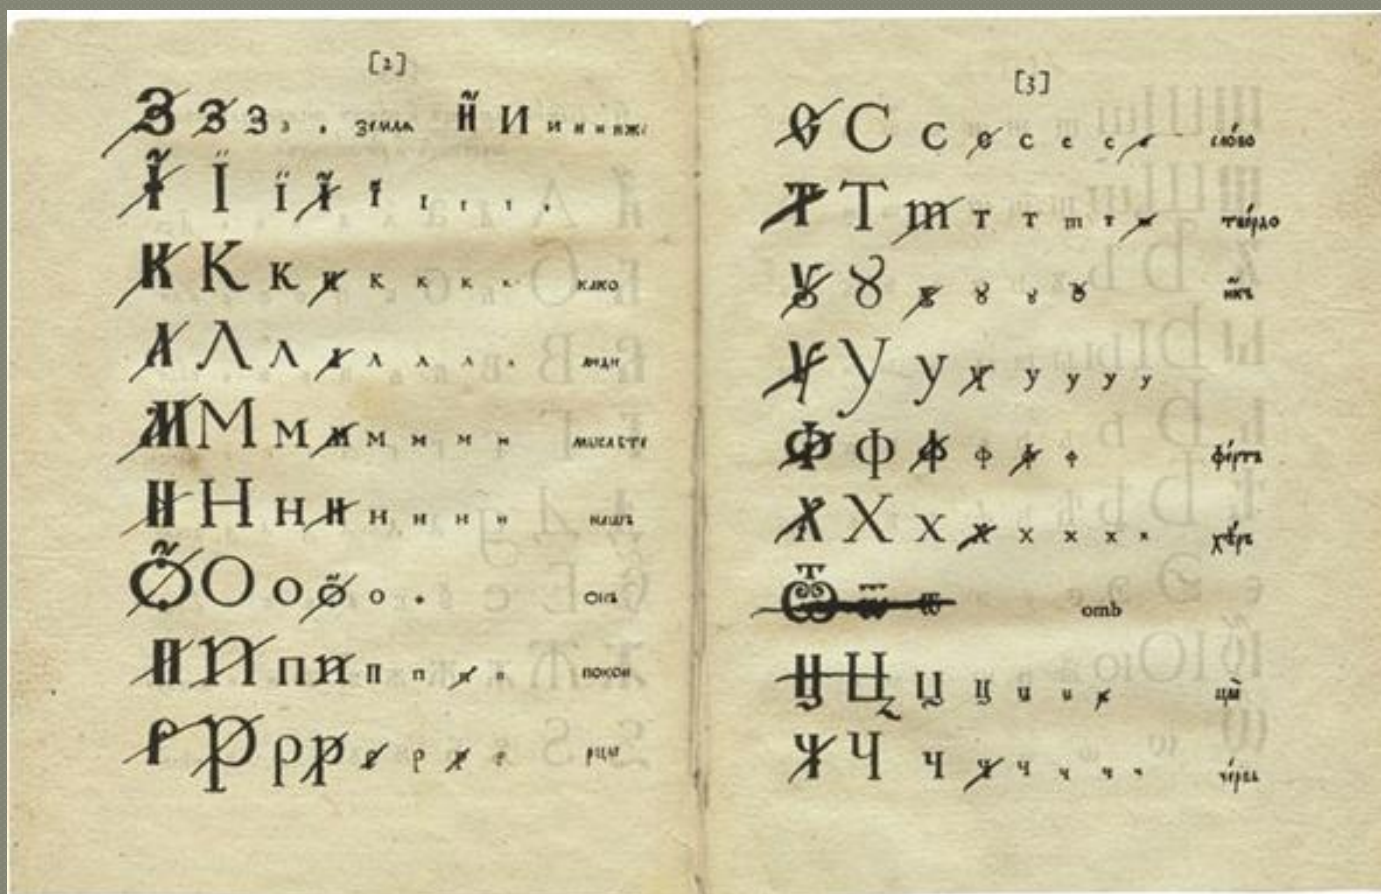 [2]
З З З з з земла Й И и и и и иже
Ї Ї ї Ї ї ї ї ї ї
К К к к к к к к к како
Л Л л л л л л л л люди
М М м м м м м м м
Н Н н н н н н н н нашъ
Ѻ О о о о о онъ
П П п п п п п п покои
Р Р р р р р р р рцы
[3]
С С с с с с с с сло́во
Т Т т т т т т т тве́рдо
Ꙋ Ꙋ ꙋ ꙋ ꙋ ꙋ и҆́къ
У У у у у у у у
Ф Ф ф ф ф ф фе́ртъ
Х Х х х х х х х хѣ́ръ
Ѿ ѿ ѿ отъ
Ц Ц ц ц ц ц ц цы̀
Ч Ч ч ч ч ч ч ч че́рвь